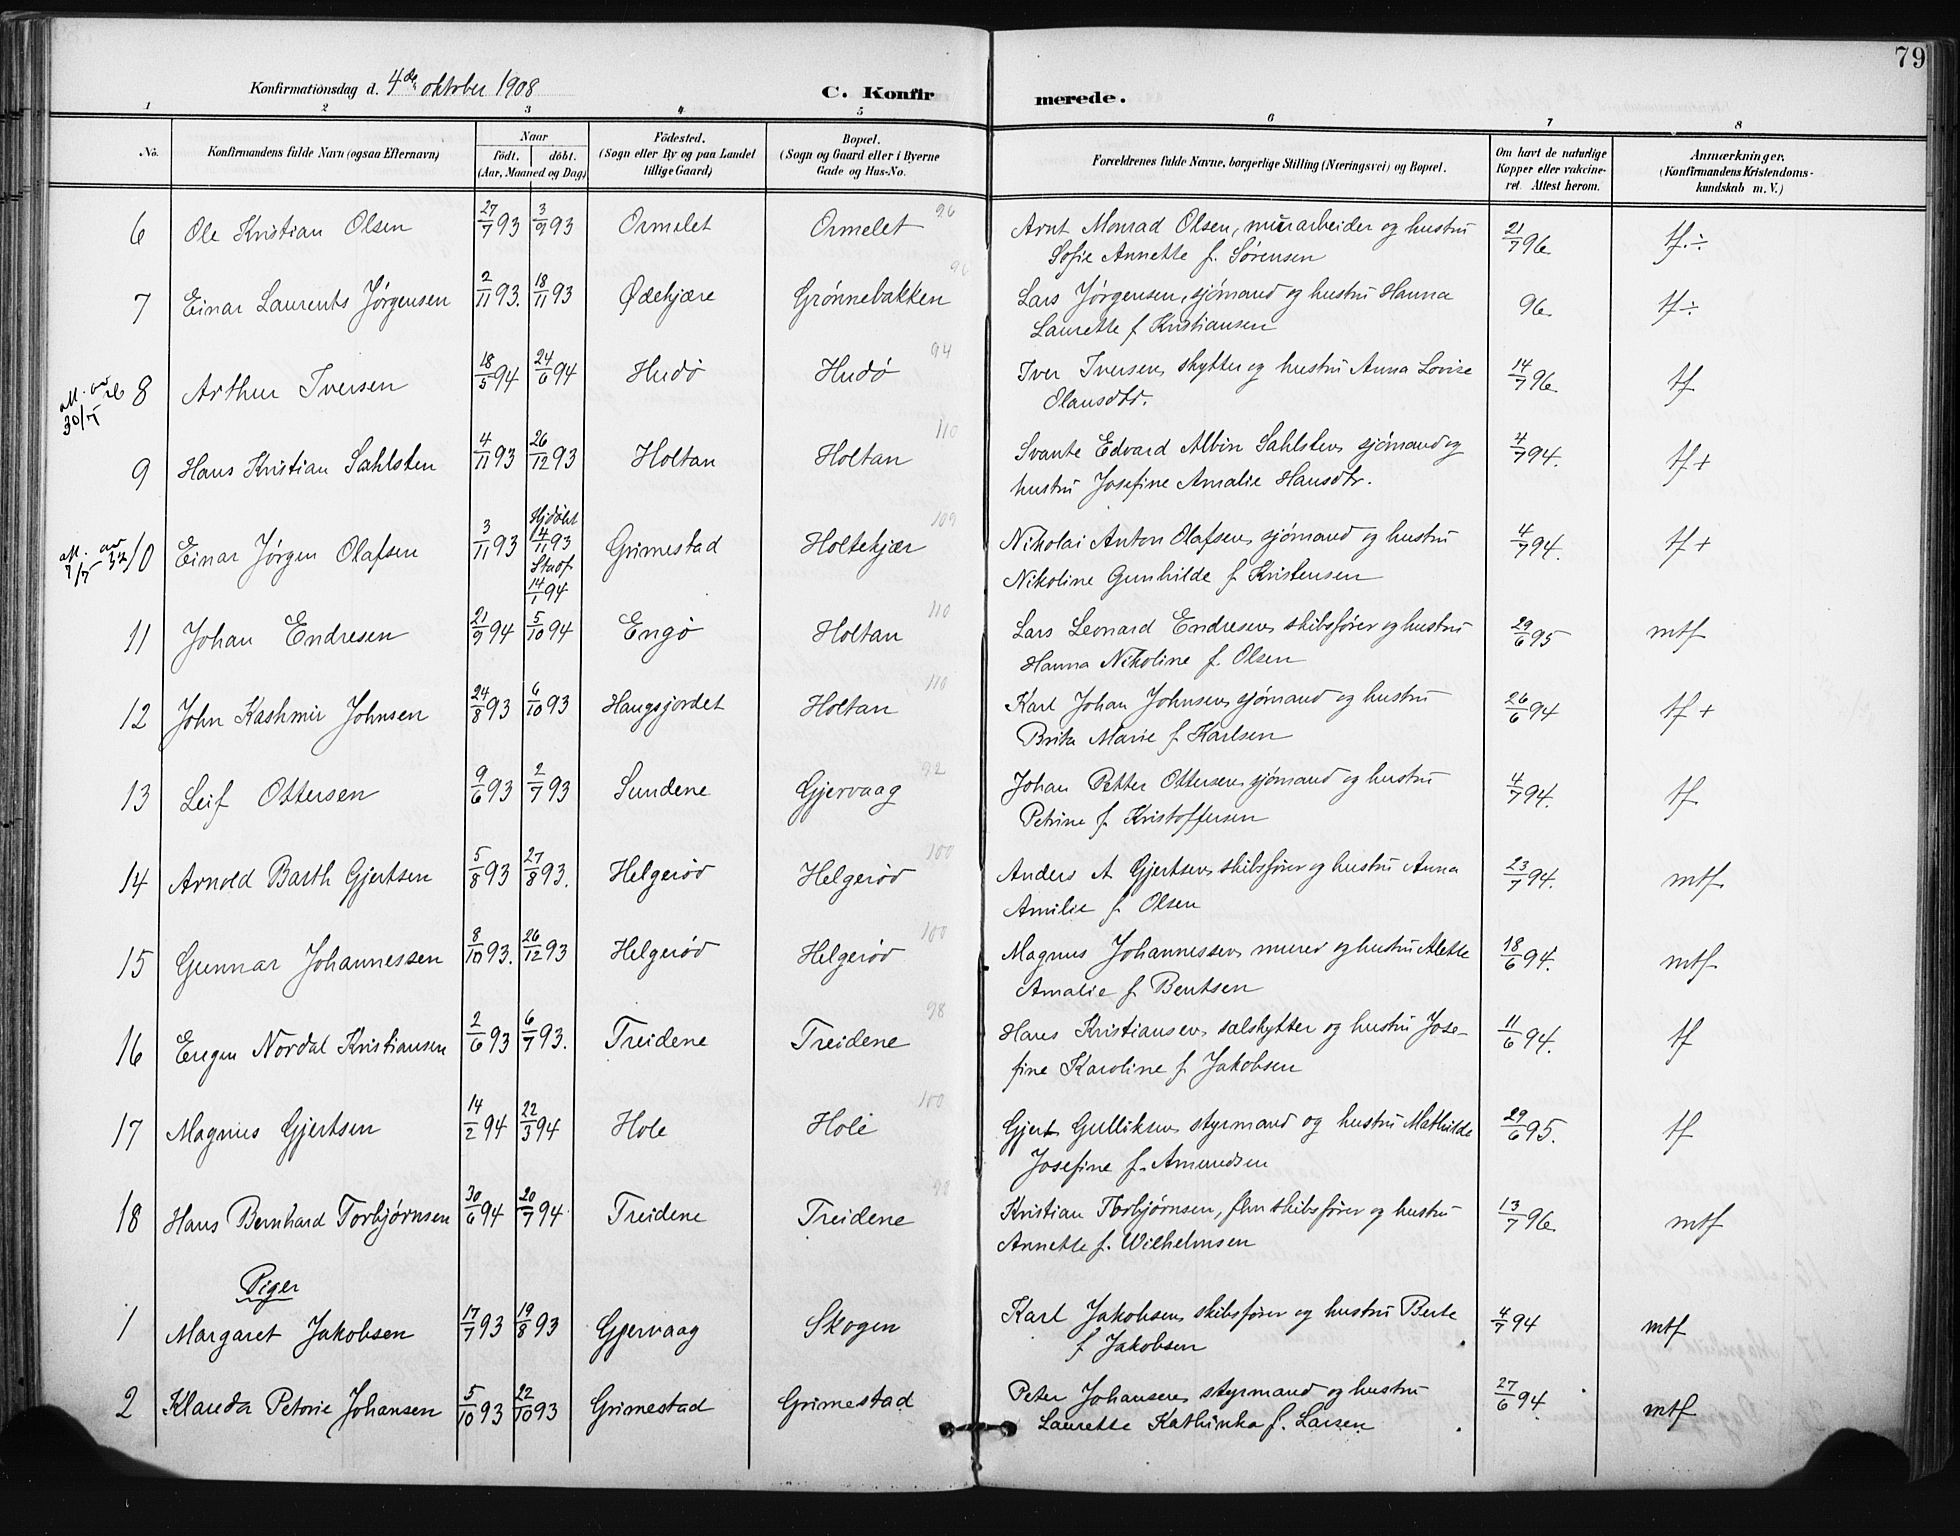 79
Konfirmationsdag d. 4de oktober 1908
C. Konfirmerede.
1 2 3 4 5 6 7 8
No. Konfirmandens fulde Navn (ogsaa Efternavn) Naar født. døbt. (Aar, Maaned og Dag) Fødested. (Sogn eller By og paa Landet tillige Gaard) Bopæl. (Sogn og Gaard eller i Byerne Gade og Hus-No. Forældrenes fulde Navne, borgerlige Stilling (Næringsvei) og Bopæl. Om havt de naturlige Kopper eller vakcineret. Attest herom. Anmærkninger. (Konfirmandens Kristendomskundskab m. V.)
6 Ole Kristian Olsen 27/7 93 3/9 93 Ormelet Ormelet 96 Arnt Monrad Olsen, murarbeider og hustru 21/7 96 tf. ÷
Sofie Annette f. Sørensen
7 Einar Laurents Jørgensen 2/11 93. 18/11 93 Ødekjære Grønnebakken 96 Lars Jørgensen, sjømand og hustru Hanna 96 tf ÷
Laurette f Kristiansen
8 Arthur Iversen 18/5 94 24/6 94 Hudø Hudø 94 Iver Iversen, skytter og hustru Anna Lovise 14/7 96 tf
Olausdtr.
9 Hans Kristian Sahlsten 4/11 93 26/12 93 Holtan Holtan 110 Svante Edvard Albin Sahlsten, sjømand og 4/7 94. tf +
hustru Josefine Amalie Hansdtr.
10 Einar Jørgen Olafsen 3/11 93 Hjdøbt 14/11 93 Stadf 14/1 94 Grimestad Holtekjær 109 Nikolai Anton Olafsen, sjømand og hustru 4/7 94. tf +
Nikoline Gunhilde f Kristensen
11 Johan Endresen 21/9 94 5/10 94 Engø Holtan 110 Lars Leonard Endresen, skibsfører og hustru 29/6 95 mtf
Hanna Nikoline f. Olsen
12 John Kashmir Johnsen 24/8 93 6/10 93 Haugsjordet Holtan 110 Karl Johan Johnsen, sjømand og hustru 26/6 94 tf +
Brita Marie f Karlsen
13 Leif Ottersen 9/6 93 2/7 93 Sundene Gjervaag 92 Johan Petter Ottersen, sjømand og hustru 4/7 94. tf
Petrine f Kristoffersen
14 Arnold Barth Gjertsen 5/8 93 27/8 93. Helgerød Helgerød 100 Anders A Gjertsen, skibsfører og hustru Anna 23/7 94. mtf
Amilie f. Olsen
15 Gunnar Johannessen 8/10 93. 26/12 93 Helgerød Helgerød 100 Magnus Johannessen, murer og hustru Alette 18/6 94. mtf
Amalie f Bentsen
16 Eugen Nordal Kristiansen 2/6 93 6/7 93. Treidene Treidene 98 Hans Kristiansen, sælskytter og hustru Jose- 11/6 94. tf
fine Karoline f Jakobsen
17 Magnus Gjertsen 14/2 94 22/3 94 Hole Hole 100 Gjert Gulliksen, styrmand og hustru Mathilde 29/6 95. tf
Josefine f. Amundsen
18 Hans Bernhard Torbjørnsen 30/6 94 20/7 94 Treidene Treidene 98 Kristian Torbjørnsen, fhn skibsfører og hustru 13/7 96 mtf
Annette f. Wilhelmsen
Piger
1 Margaret Jakobsen 17/7 93 19/8 93 Gjervaag Skogen Karl Jakobsen, skibsfører og hustru Berte 4/7 94 mtf
f Jakobsen
2 Klauda Petorie Johansen 5/10 93 22/10 93 Grimestad Grimestad Peter Johansen, styrmand og hustru 27/6 94 mtf
Laurette Kathinka f. Larsen